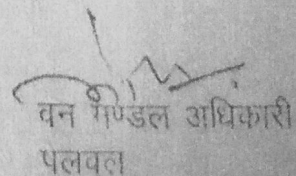 वन मण्डल अधिकारी
पलवल